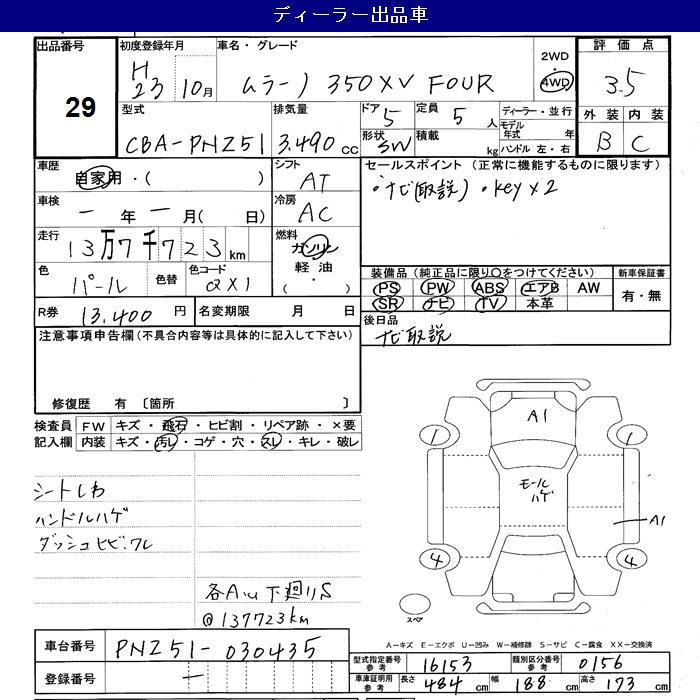 ディーラー出品車
出品番号
29
初度登録年月
H
23 10月
車名・グレード
ムラーノ 350XV FOUR
2WD
・
4WD
評価点
3.5
外装 内装
B C
型式
CBA-PNZ51
排気量
3.490 cc
ドア
5
形状
SW
定員
5 人
積載
kg
ディーラー・並行
モデル
年式 年
ハンドル 左・右
車歴
自家用・( )
シフト
AT
車検
ー 年 ー 月( 日)
冷房
AC
走行
13万7千723km
燃料
ガソリン
軽油
( ・ )
色
パール
色替
色コード
QX1
R券
13.400 円
名変期限 月 日
セールスポイント (正常に機能するものに限ります)
・ナビ(取説) ・key×2
装備品 (純正品に限り○をつけてください)
PS PW ABS エアB AW
SR ナビ TV 本革
新車保証書
有・無
後日品
ナビ取説
注意事項申告欄(不具合内容等は具体的に記入して下さい)
修復歴 有 〔箇所 〕
検査員
記入欄
FW キズ・飛石・ヒビ割・リペア跡・×要
内装 キズ・汚レ・コゲ・穴・スレ・キレ・破レ
シートしわ
ハンドルハゲ
ダッシュヒビ・ワレ
下廻りS
@137723km
A1
1
1
モール
ハゲ
A1
4
4
スペア
A-キズ E-エクボ U-凹み W-補修跡 S-サビ C-腐食 XX-交換済
車台番号
PNZ51-030435
登録番号
ー
型式指定番号
参考
16153
類別区分番号
参考
0156
車庫証明用
参考
長さ 484 cm 幅 188 cm 高さ 173 cm